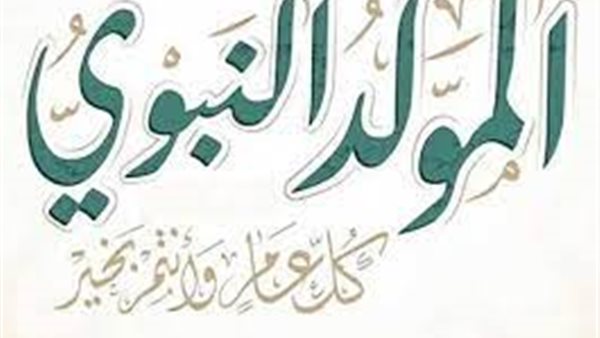 المَوْلِدُ النَّبَوْيِّ
كُلُّ عَامٍ وَأَنتُمْ بِخَيْرٍ